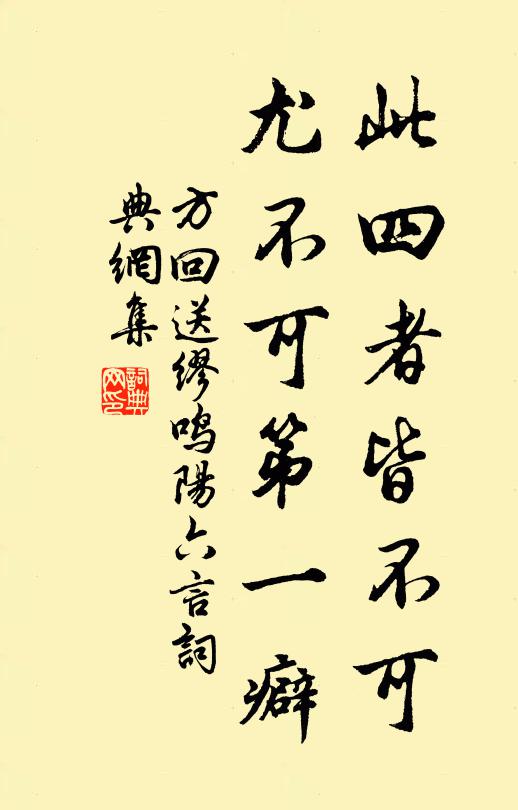 此四者皆不可
尤不可第一癖
方回送繆鳴陽六言詞
典網集
詞典
网印